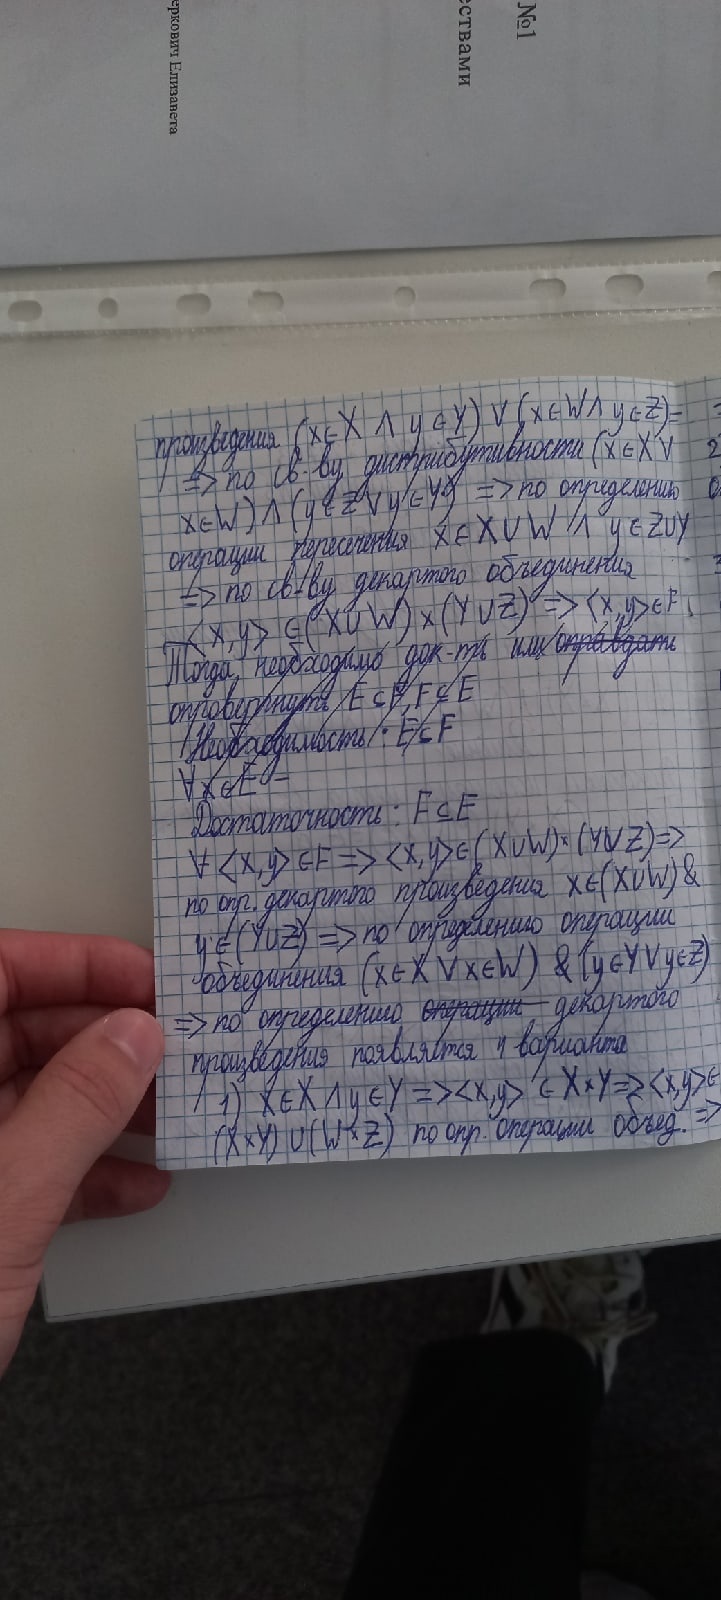 №1
ествами
еркович Елизавета
произведения (x∈X ∧ y∈Y) ∨ (x∈W ∧ y∈Z) =
=> по св-ву дистрибутивности (x∈X ∨
x∈W) ∧ (y∈Z ∨ y∈Y) => по определению
операции пересечения x∈X∪W ∧ y∈Z∪Y
=> по св-ву декартого объединения
<x,y> ∈ (X∪W)×(Y∪Z) => <x,y>∈F
Тогда, необходимо док-ть или оправдать
опровергнуть E⊆F, F⊆E
Необходимость: E⊆F
∀x∈E –
Достаточность: F⊆E
∀ <x,y>∈F => <x,y>∈(X∪W)×(Y∪Z) =>
по опр. декартого произведения x∈(X∪W) &
y∈(Y∪Z) => по определению операции
объединения (x∈X ∨ x∈W) & (y∈Y ∨ y∈Z)
=> по определению операции декартого
произведения появляется 4 варианта
1) x∈X ∧ y∈Y => <x,y> ∈ X×Y => <x,y>∈
(X×Y) ∪ (W×Z) по опр. операции объед. =>